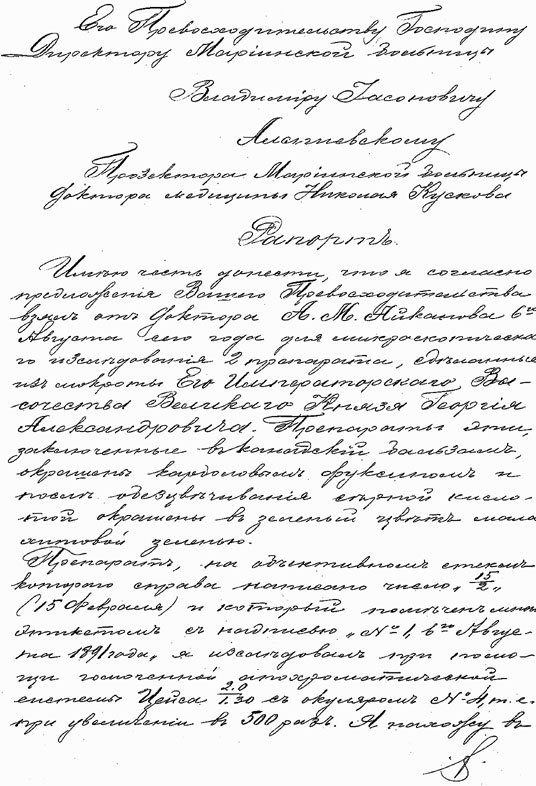 Его Превосходительству Господину
Директору Маріинской больницы
Владиміру Іасоновичу
Алышевскому
Прозектора Маріинской больницы
Доктора медицины Николая Кускова
Рапортъ.
Имѣю честь донести, что я согласно
предложенія Вашего Превосходительства
взялъ отъ Доктора А. М. Айканова 6го
Августа сего года для микроскопическа
го изслѣдованія 2 препарата, сдѣланные
изъ мокроты Его Императорскаго Вы-
сочества Великаго Князя Георгія
Александровича. Препараты эти,
заключенные въ канадскій бальзамъ,
окрашены карболовымъ фуксиномъ и
послѣ обезцвѣчиванія сѣрной кисло-
той окрашены въ зеленый цвѣтъ мала
хитовой зеленью.
Препаратъ, на объективномъ стеклѣ
котораго справа написано число „15/2„
(15 Февраля) и который помѣченъ мною
этикетомъ съ надписью „№ 1, 6го Авгус-
та 1891 года„ я изслѣдовалъ при помо-
щи гомогенной апохроматической
системы Цейса 2.0/1.30 съ окуляромъ № 4, т. е.
при увеличеніи въ 500 разъ. Я нахожу въ